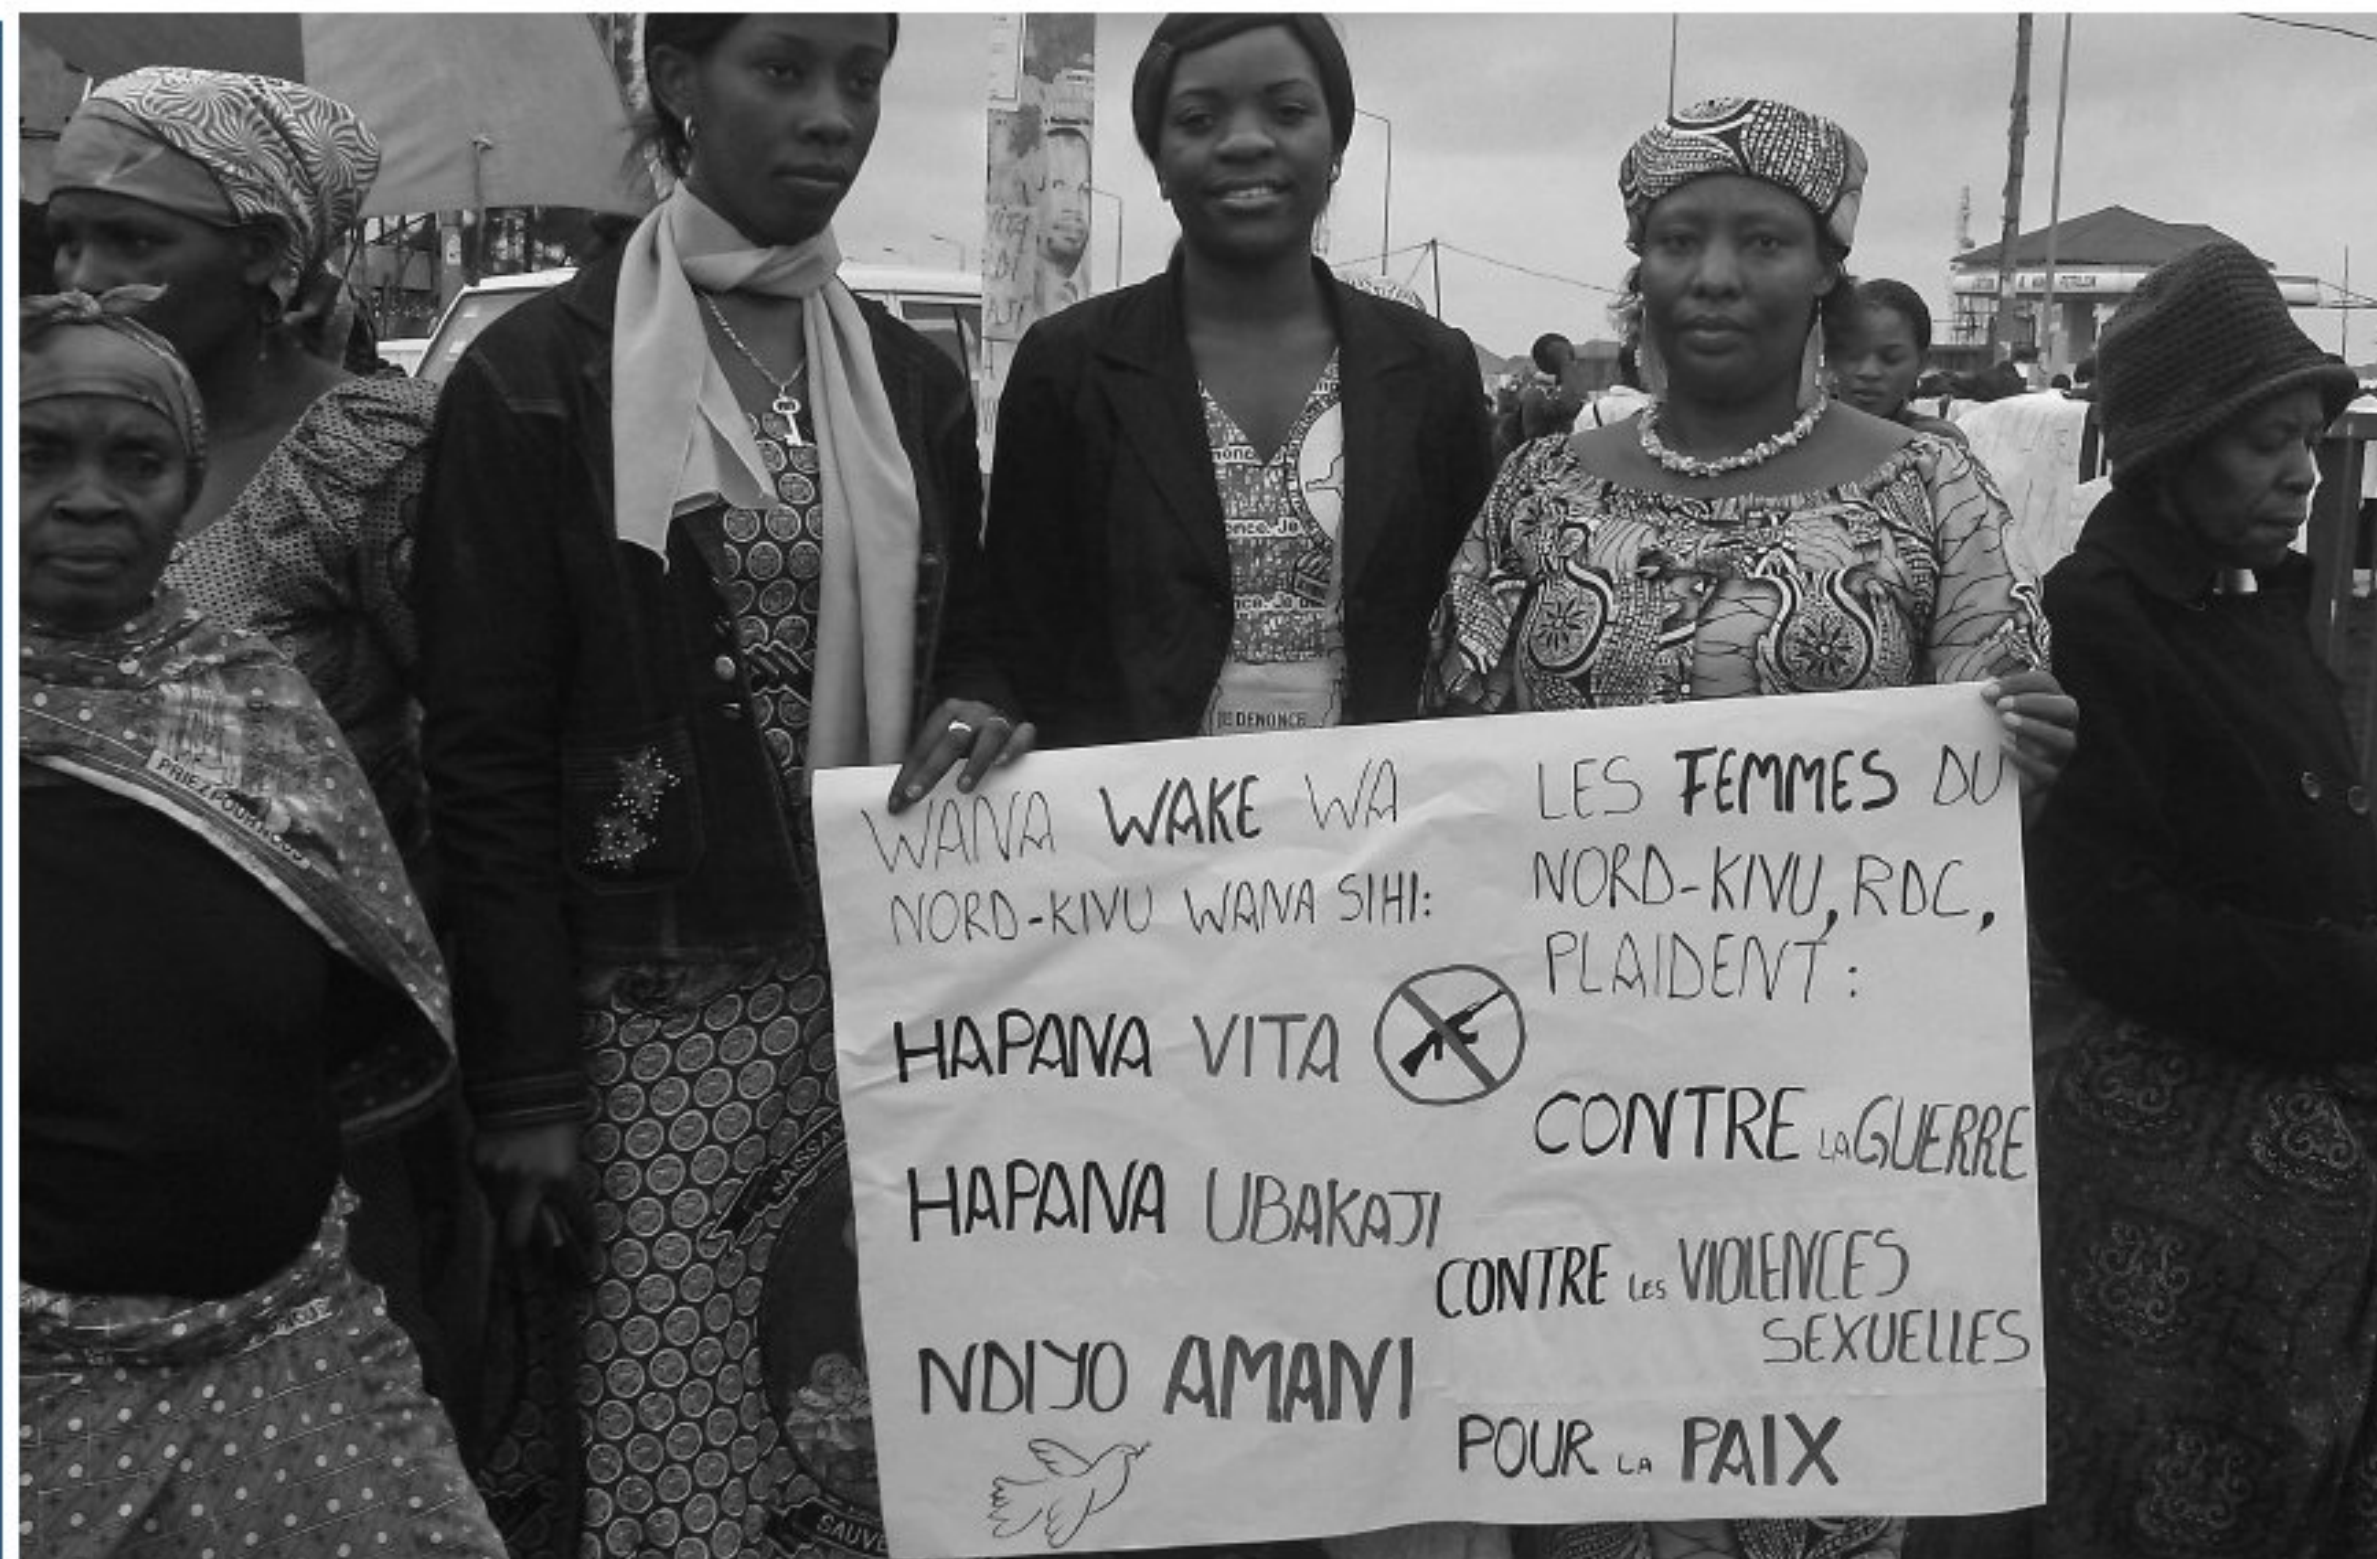 WANA WAKE WA
NORD-KIVU WANA SIHI:
HAPANA VITA
HAPANA UBAKAJI
NDIYO AMANI
LES FEMMES DU
NORD-KIVU, RDC,
PLAIDENT:
CONTRE LA GUERRE
CONTRE LES VIOLENCES
SEXUELLES
POUR LA PAIX
JE DENONCE
PRIEZ POUR NOUS